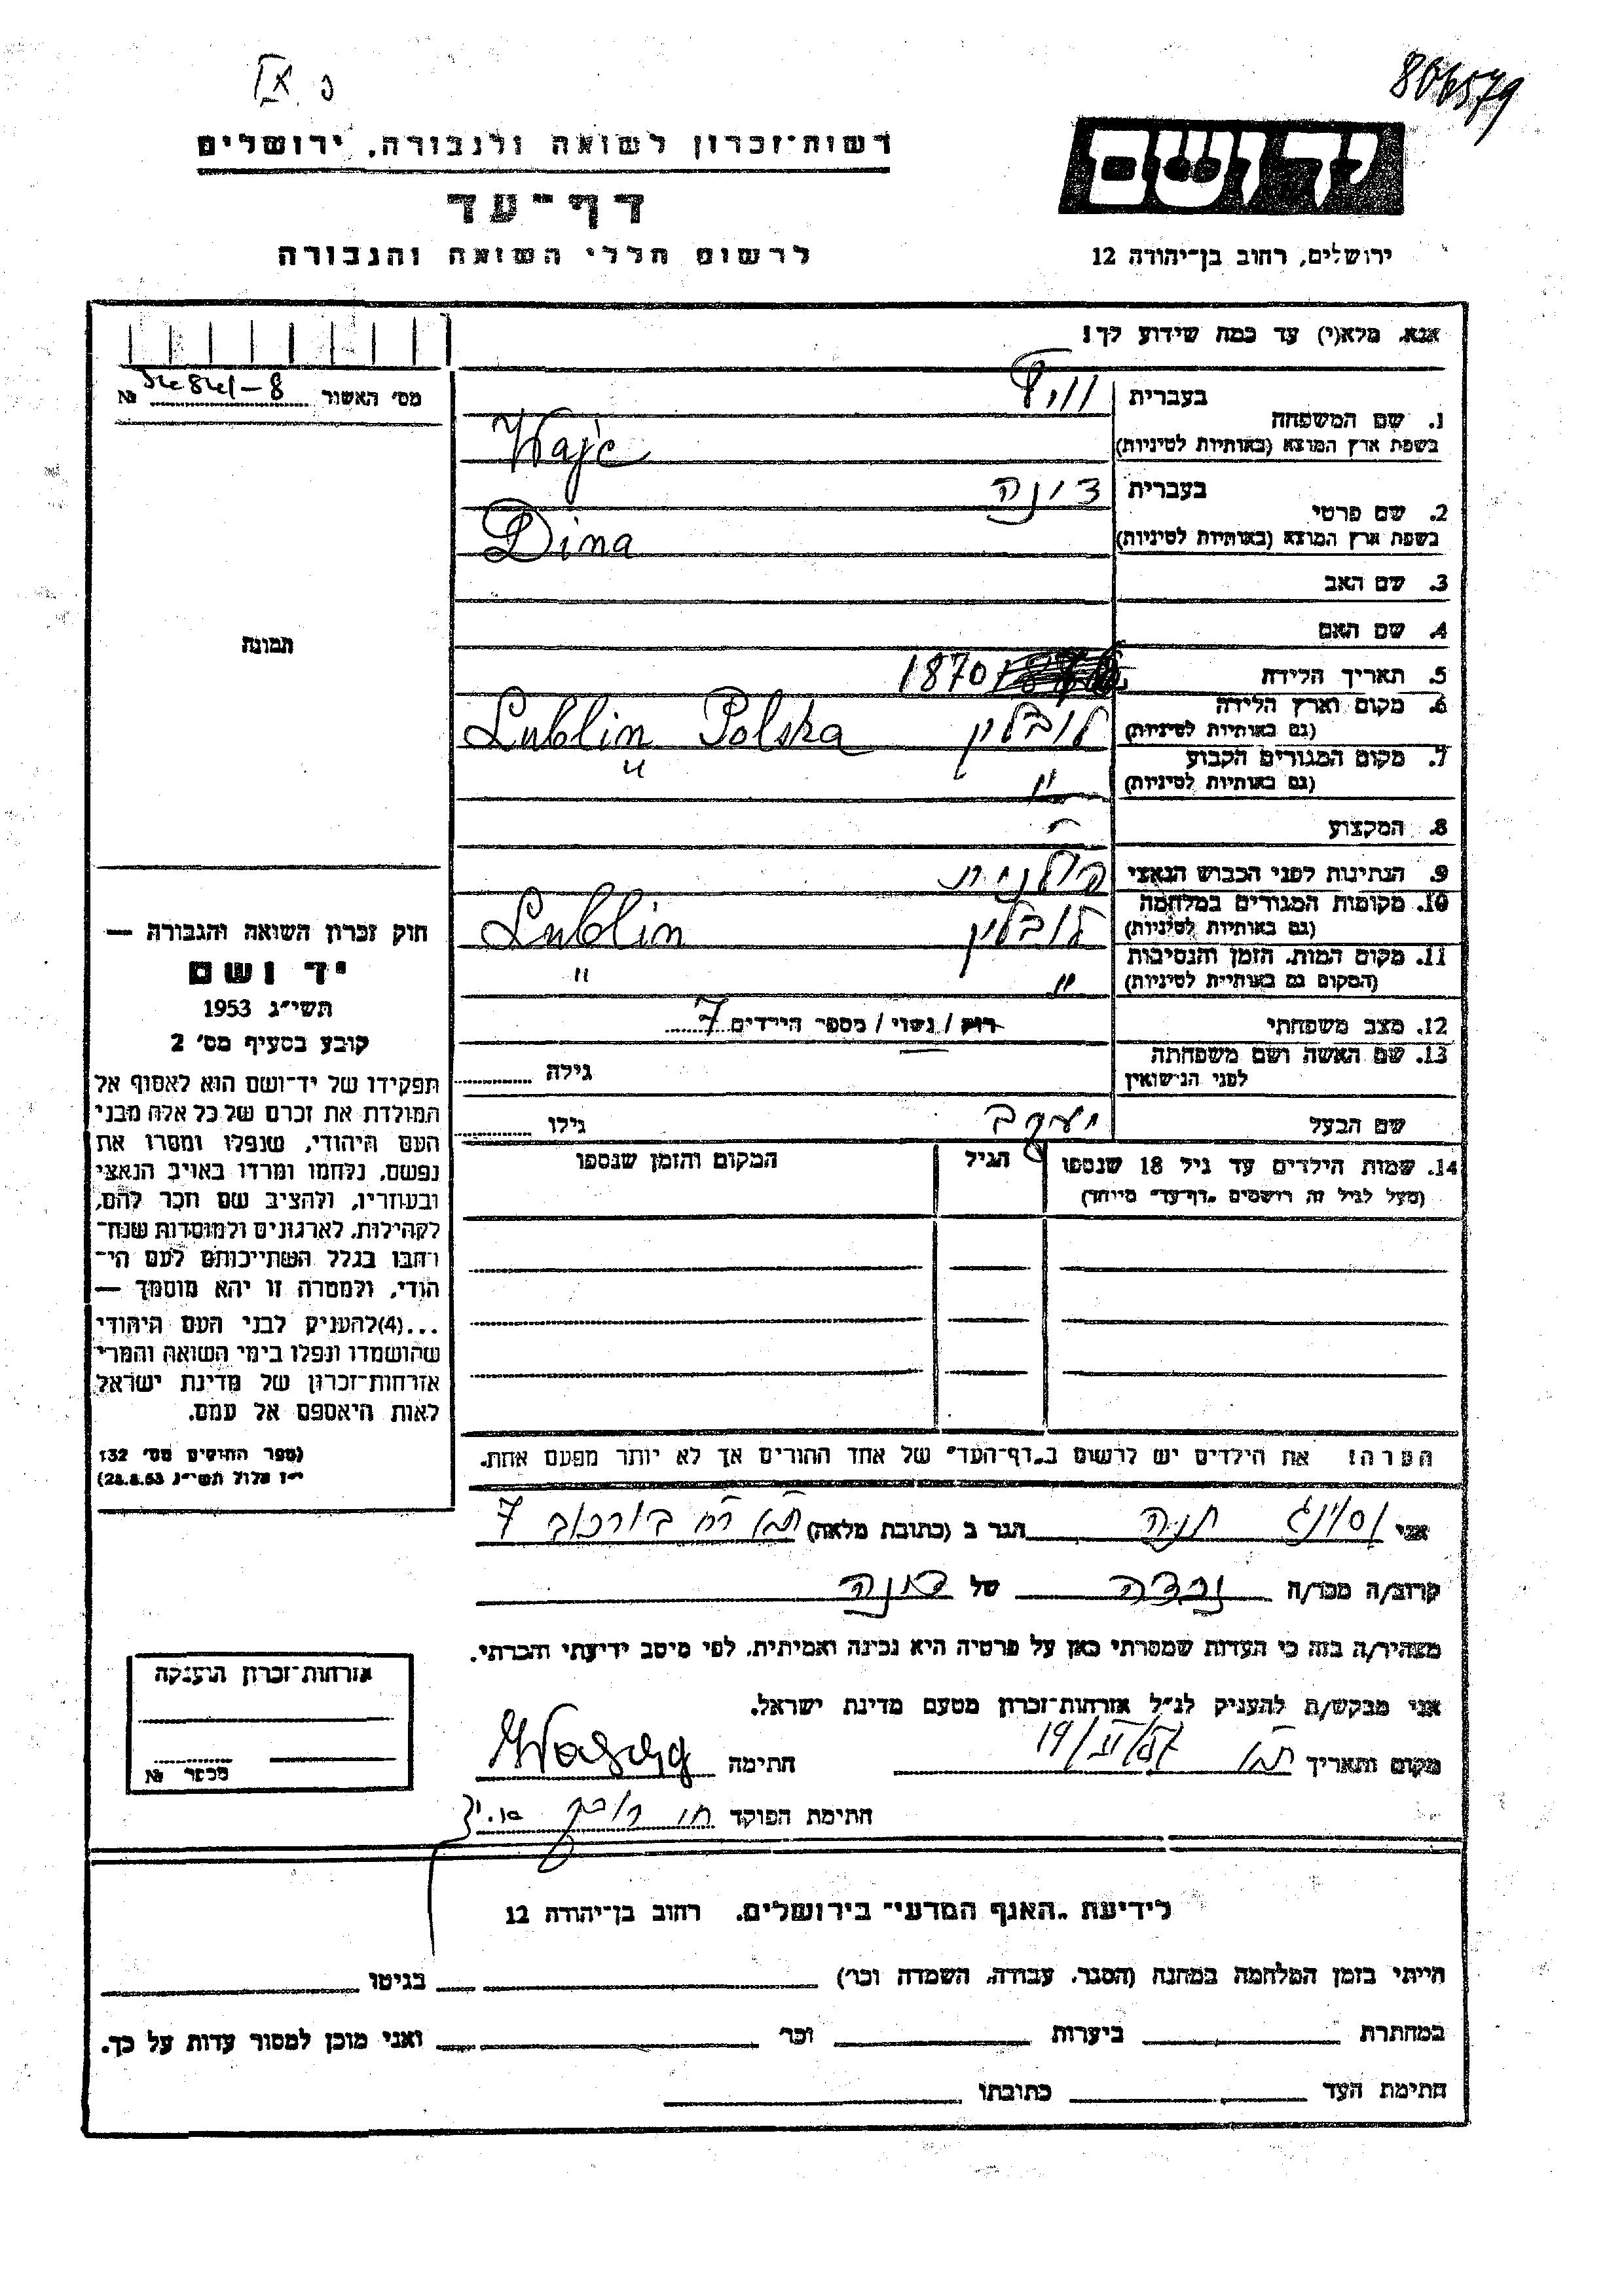 806579
רשות־זכרון לשואה ולגבורה, ירושלים
דף־עד
לרשום חללי השואה והגבורה
יד ושם
ירושלים, רחוב בן־יהודה 12
אנא, מלא(י) עד כמה שידוע לך!
מס׳ האשור № 
בעברית
1. שם המשפחה
בשפת ארץ המוצא (באותיות לטיניות) Wajc
בעברית דינה
2. שם פרטי
בשפת ארץ המוצא (באותיות לטיניות) Dina
3. שם האב
4. שם האם
5. תאריך הלידה 1870
6. מקום וארץ הלידה
(גם באותיות לטיניות) לובלין Lublin Polska
7. מקום המגורים הקבוע
(גם באותיות לטיניות) " "
8. המקצוע
9. הנתינות לפני הכבוש הנאצי פולנית
10. מקומות המגורים במלחמה
(גם באותיות לטיניות) לובלין Lublin
11. מקום המות, הזמן והנסיבות
(המקום גם באותיות לטיניות) " "
12. מצב משפחתי רוק / נשוי / מספר הילדים 7
13. שם האשה ושם משפחתה
לפני הנישואין גילה
שם הבעל יעקב גילו
14. שמות הילדים עד גיל 18 שנספו
(מעל לגיל זה רושמים „דף־עד״ מיוחד)
הגיל
המקום והזמן שנספו
הערה: את הילדים יש לרשום ב„דף־העד״ של אחד ההורים אך לא יותר מפעם אחת.
תמונה
חוק זכרון השואה והגבורה —
יד ושם
תשי״ג 1953
קובע בסעיף מס׳ 2
תפקידו של יד־ושם הוא לאסוף אל
המולדת את זכרם של כל אלה מבני
העם היהודי, שנפלו ומסרו את
נפשם, נלחמו ומרדו באויב הנאצי
ובעוזריו, ולהציב שם וזכר להם,
לקהילות, לארגונים ולמוסדות שנח־
רבו בגלל השתייכותם לעם הי־
הודי, ולמטרה זו יהא מוסמך —
...(4)להעניק לבני העם היהודי
שהושמדו ונפלו בימי השואה והמרי
אזרחות־זכרון של מדינת ישראל
לאות היאספם אל עמם.
(ספר החוקים מס׳ 132
י״ז אלול תשי״ג 28.8.53)
אני חנה הגר ב (כתובת מלאה) בורכוב 7
קרוב/ה מכר/ה נכדה של דינה
מצהיר/ה בזה כי העדות שמסרתי כאן על פרטיה היא נכונה ואמיתית, לפי מיטב ידיעתי והכרתי.
אני מבקש/ת להעניק לנ״ל אזרחות־זכרון מטעם מדינת ישראל.
מקום ותאריך חתימה
חתימת הפוקד
אזרחות־זכרון הוענקה
מספר №
לידיעת „האגף המדעי״ בירושלים, רחוב בן־יהודה 12
הייתי בזמן המלחמה במחנה (הסגר, עבודה, השמדה וכו׳) בגיטו
במחתרת ביערות וכו׳ ואני מוכן למסור עדות על כך.
חתימת העד כתובתו